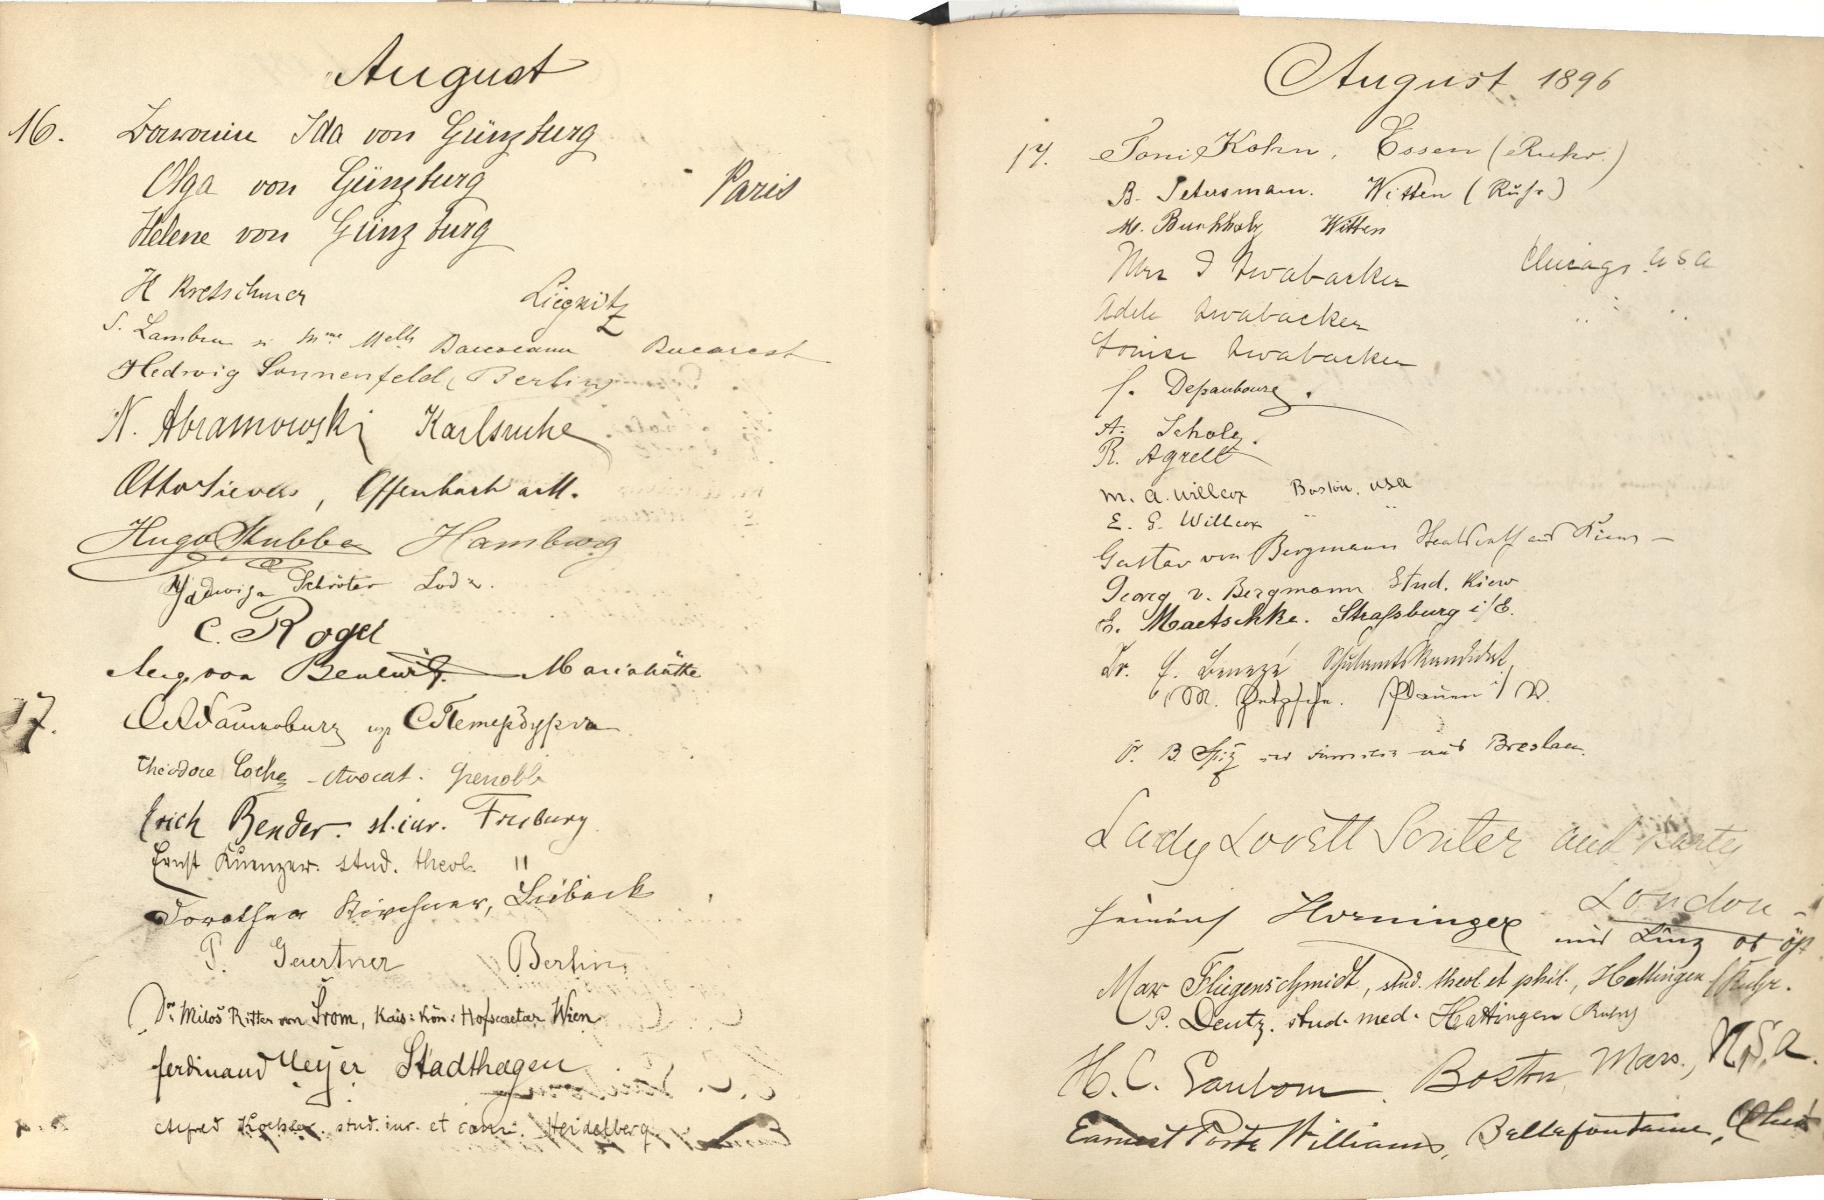 August
16. Baronin Ida von Günzburg
Olga von Günzburg Paris
Helene von Günzburg
H Kretschmer Liegnitz
S. Lambru Mme Melle Bucarest
Hedwig Sonnenfeld, Berlin
N. Abramowski Karlsruhe
Otto Sievers, Offenbach a/M.
Hugo Stubbe Hamburg
Jadwiga Schröter Lodz.
C. Rogel
Aug. von Marienhütte
17. С Петербурга
Théodore Avocat. Grenoble
Erich Bender. st. iur. Freiburg
Ernst Kuenzer. stud. theol. "
Dorothea Kirchner, Lübeck
P. Geertner Berlin
Dr. Miloš Ritter von Šrom, Kais: Kön: Hofsecretär Wien
Ferdinand Meyer Stadthagen
Alfred Koehler. stud. iur. et cam. Heidelberg
August 1896
17. Toni Kohn, Essen (Ruhr.)
B. Petersmann. Witten (Ruhr)
M. Buchholz Witten
Mrs I Lwabacker Chicago. USA
Adele Lwabacker " "
Louise Lwabacker
A. Scholz.
R. Agrell
M. A. Willcox Boston, USA
E. G. Willcox " "
Gustav von Bergmann aus Kiew
Georg v. Bergmann Stud. Kiew
E. Maetschke. Strassburg i/E.
Dr. Schulamtskandidat,
M. Plauen i/V.
aus Breslau.
Lady Lovett and Party
London
Heinrich Horninger aus Linz ob Öst
Max Fliegenschmidt, stud. theol et phil., Hattingen /Ruhr.
P. Deutz. stud. med. Hattingen Ruhr
H. C. Sanborn. Boston, Mass., U.S.A.
Earnest Porte Williams, Bellefontaine, Ohio